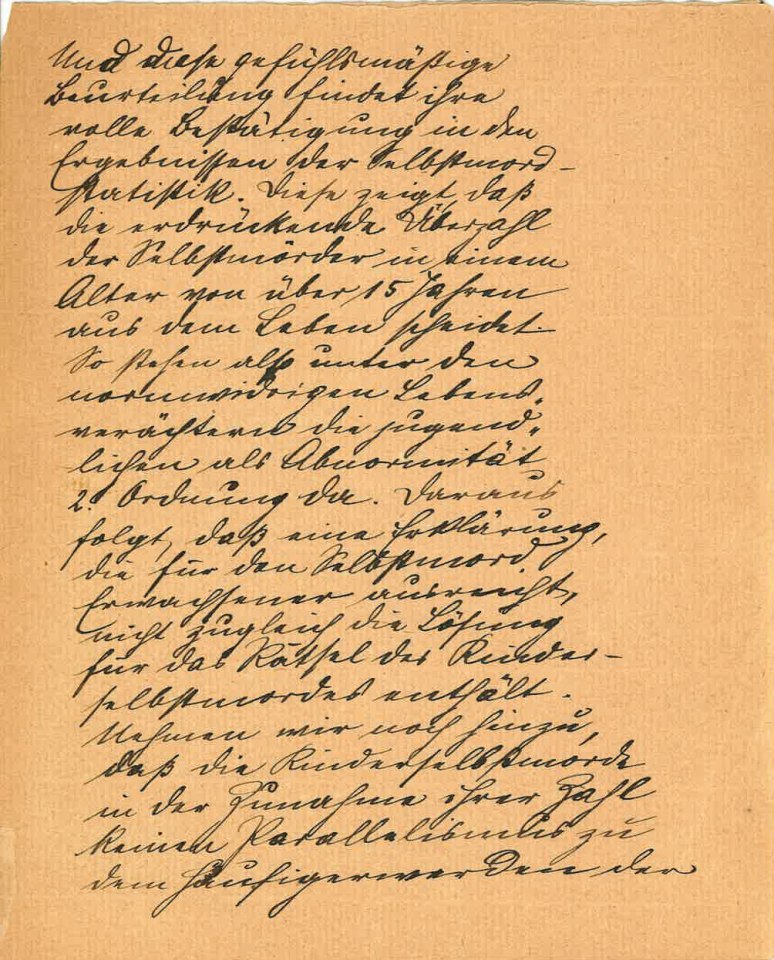 Und diese gefühlsmäßige
Beurteilung findet ihre
volle Bestätigung in den
Ergebnissen der Selbstmord-
statistik. Diese zeigt, daß
die erdrückende Überzahl
der Selbstmörder in einem
Alter von über 15 Jahren
aus dem Leben scheidet.
So stehen also unter den
normwidrigen Lebens-
verächtern die jugend-
lichen als Abnormität
2. Ordnung da. Daraus
folgt, daß eine Erklärung,
die für den Selbstmord
Erwachsener ausreicht,
nicht zugleich die Lösung
für das Rätsel des Kinder-
selbstmordes enthält.
Nehmen wir noch hinzu,
daß die Kinderselbstmorde
in der Zunahme ihrer Zahl
keinen Parallelismus zu
dem Häufigerwerden der